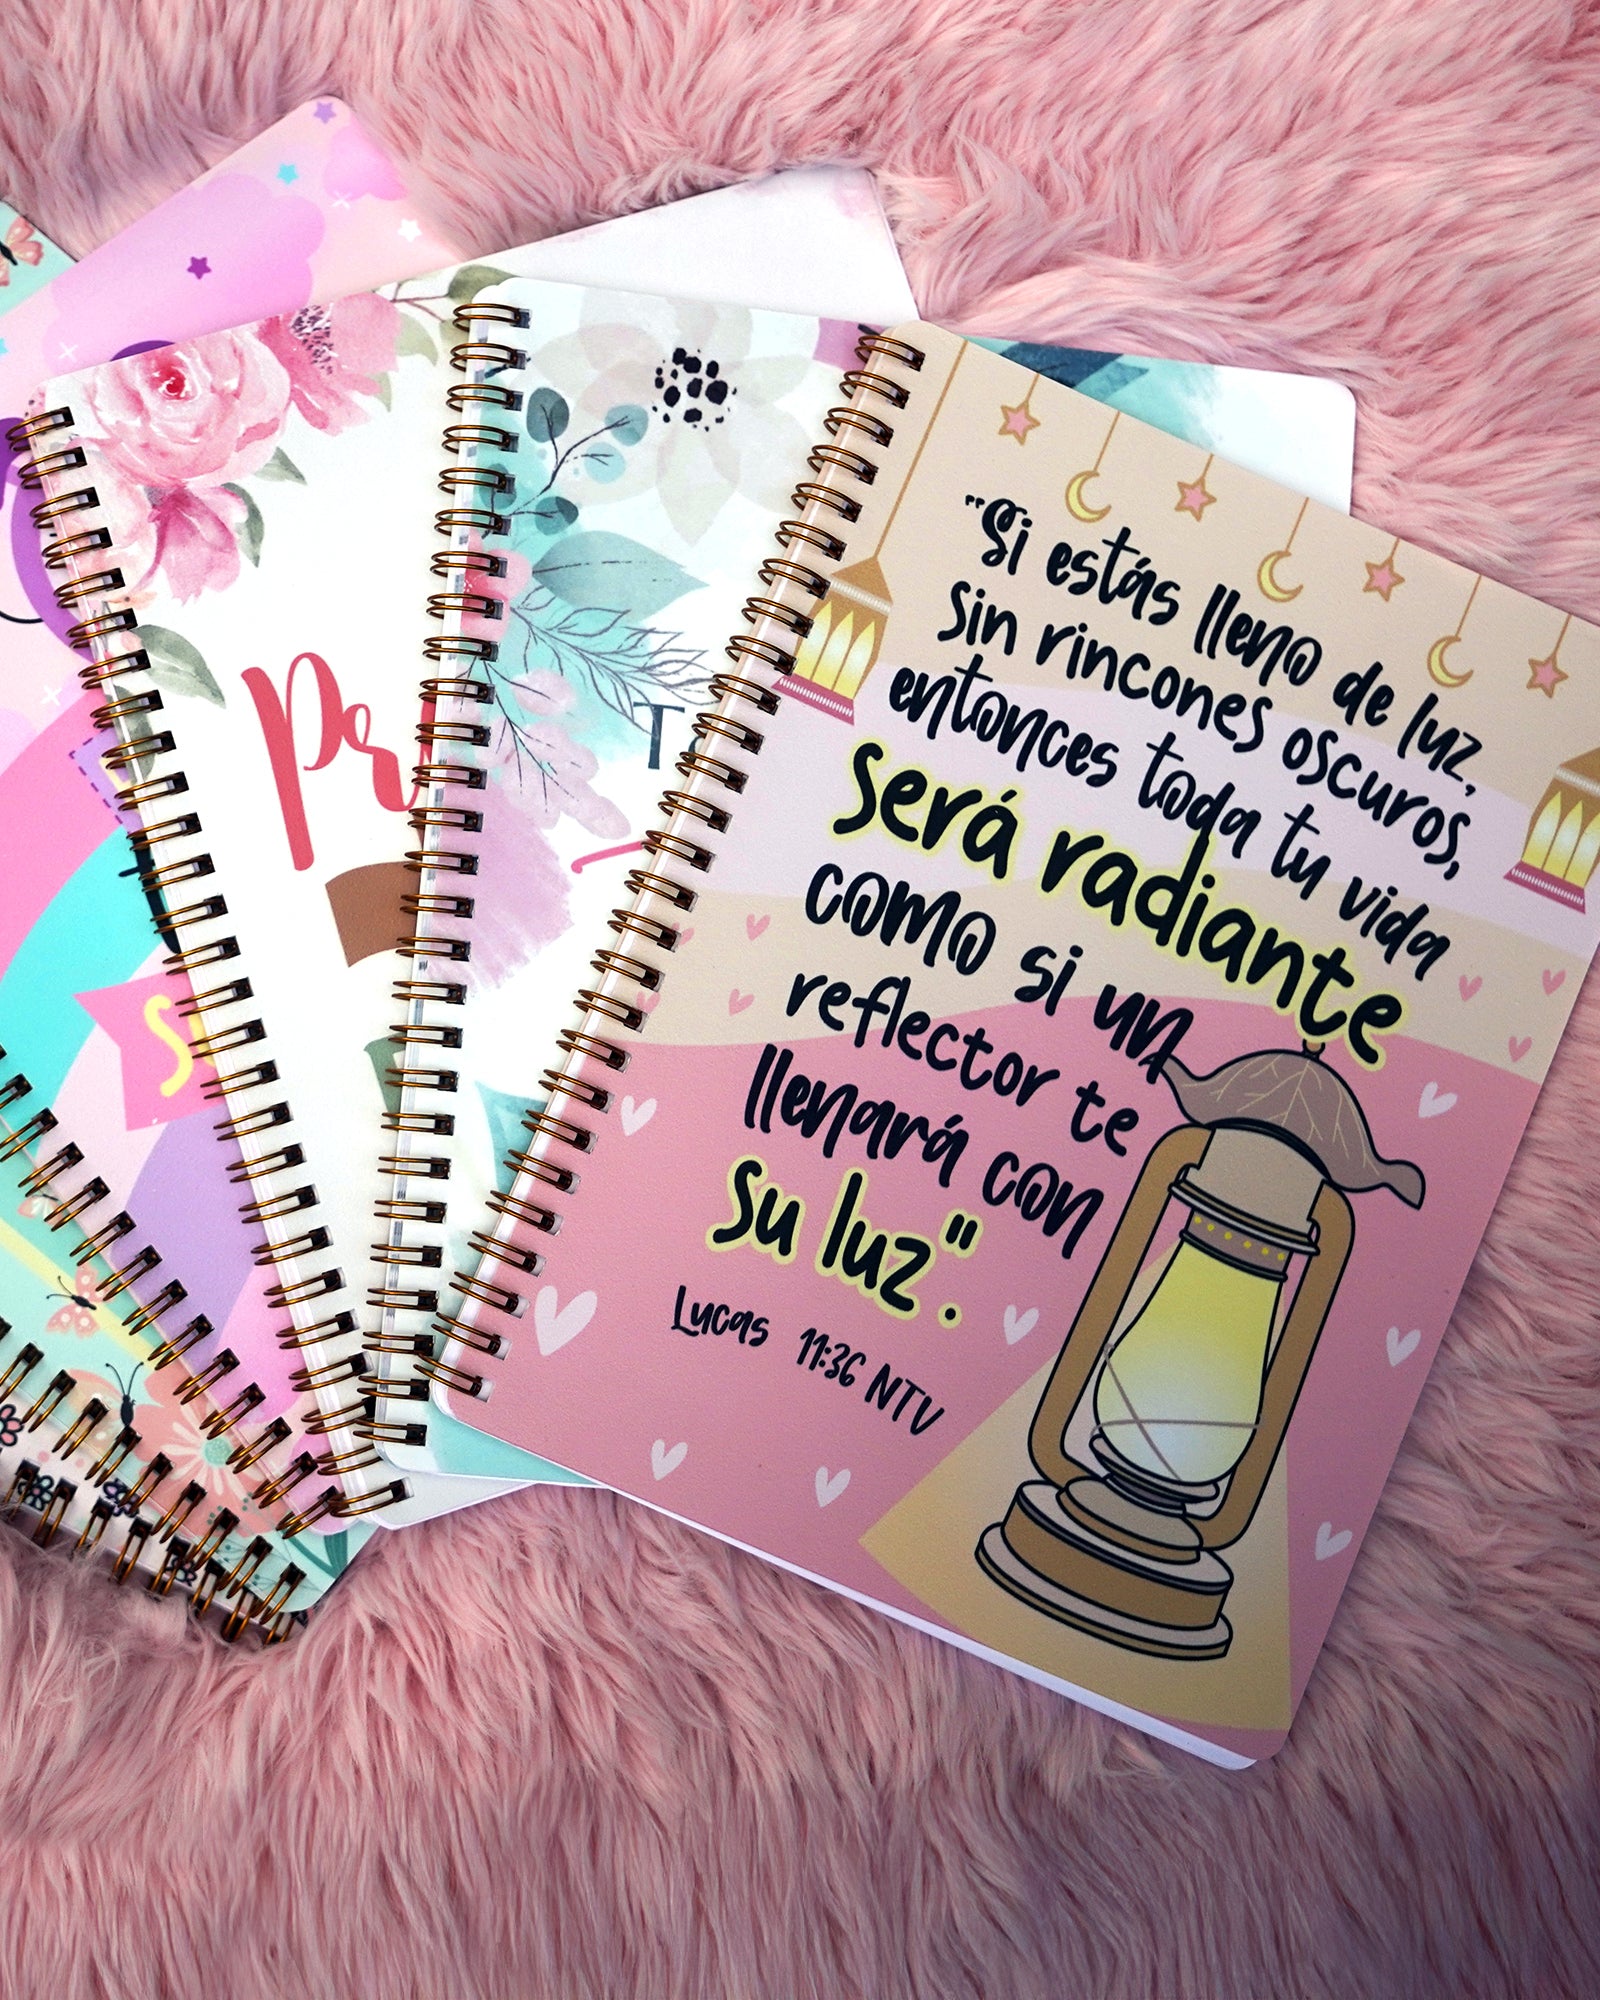 "Si estás lleno de luz,
sin rincones oscuros,
entonces toda tu vida
será radiante
como si un
reflector te
llenará con
su luz".
Lucas 11:36 NTV